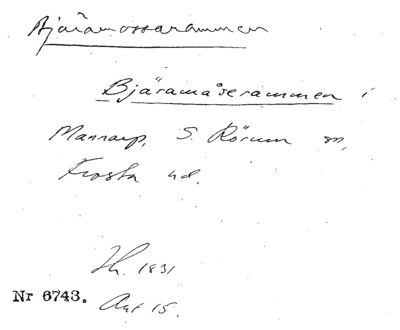 Bjäramossarammen
Bjäramåserammen i
Mannarp, S. Rörum sn,
Frosta hd.
Th. 1831
Nr 6743. Akt 15.